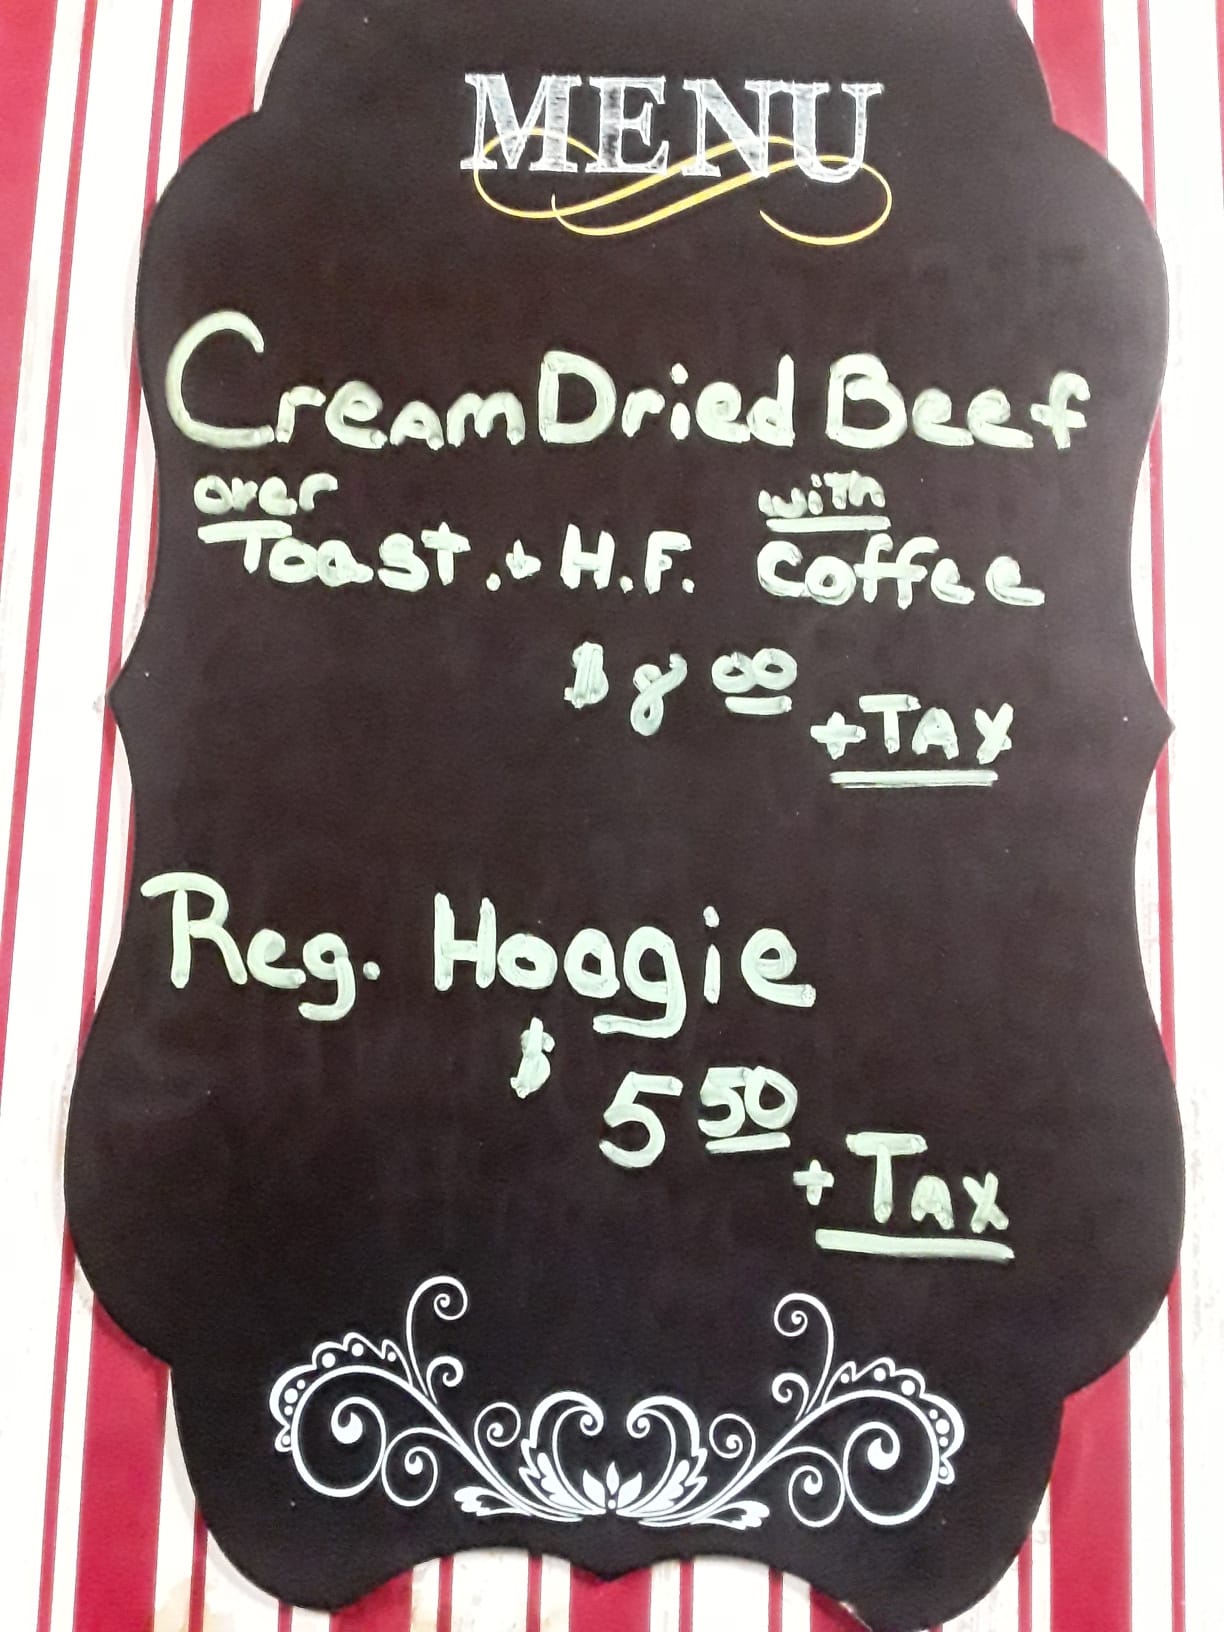 MENU
Cream Dried Beef
over with
Toast. + H.F. Coffee
$ 8 00
+ TAX
Reg. Hoagie
$ 5 50
+ TAX